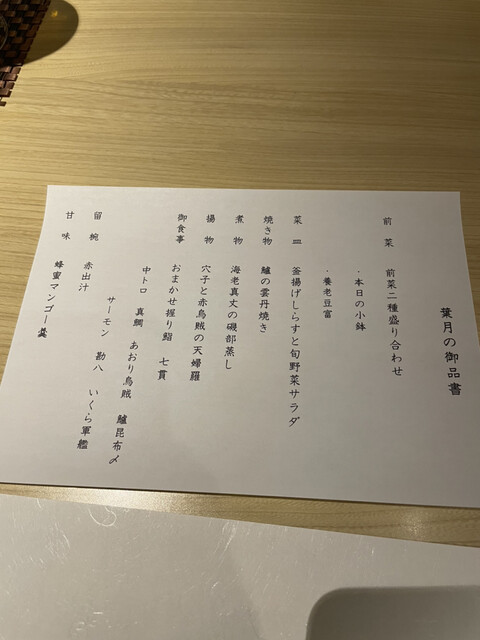 葉月の御品書
前菜 前菜二種盛り合わせ
・本日の小鉢
・養老豆富
菜皿 釜揚げしらすと旬野菜サラダ
焼き物 鱸の雲丹焼き
煮物 海老真丈の磯部蒸し
揚物 穴子と赤烏賊の天婦羅
御食事 おまかせ握り鮨 七貫
中トロ 真鯛 あおり烏賊 鱸昆布〆
サーモン 勘八 いくら軍艦
留椀 赤出汁
甘味 蜂蜜マンゴー羹